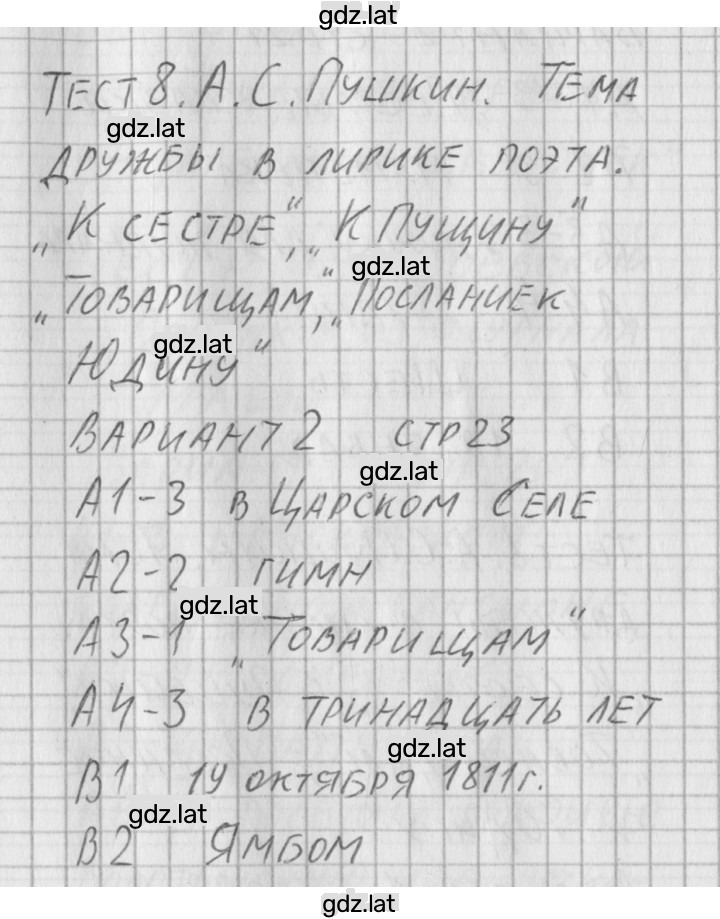 gdz.lat
Тест 8. А.С. Пушкин. Тема
gdz.lat
дружбы в лирике поэта.
„К сестре", „К Пущину"
gdz.lat
„Товарищам", „Посланиек
gdz.lat
Юдину"
Вариант 2 стр 23
gdz.lat
А1-3 в Царском Селе
А2-2 гимн
gdz.lat
А3-1 „Товарищам"
А4-3 в тринадцать лет
gdz.lat
В1 19 октября 1811г.
gdz.lat
В2 Ямбом
gdz.lat